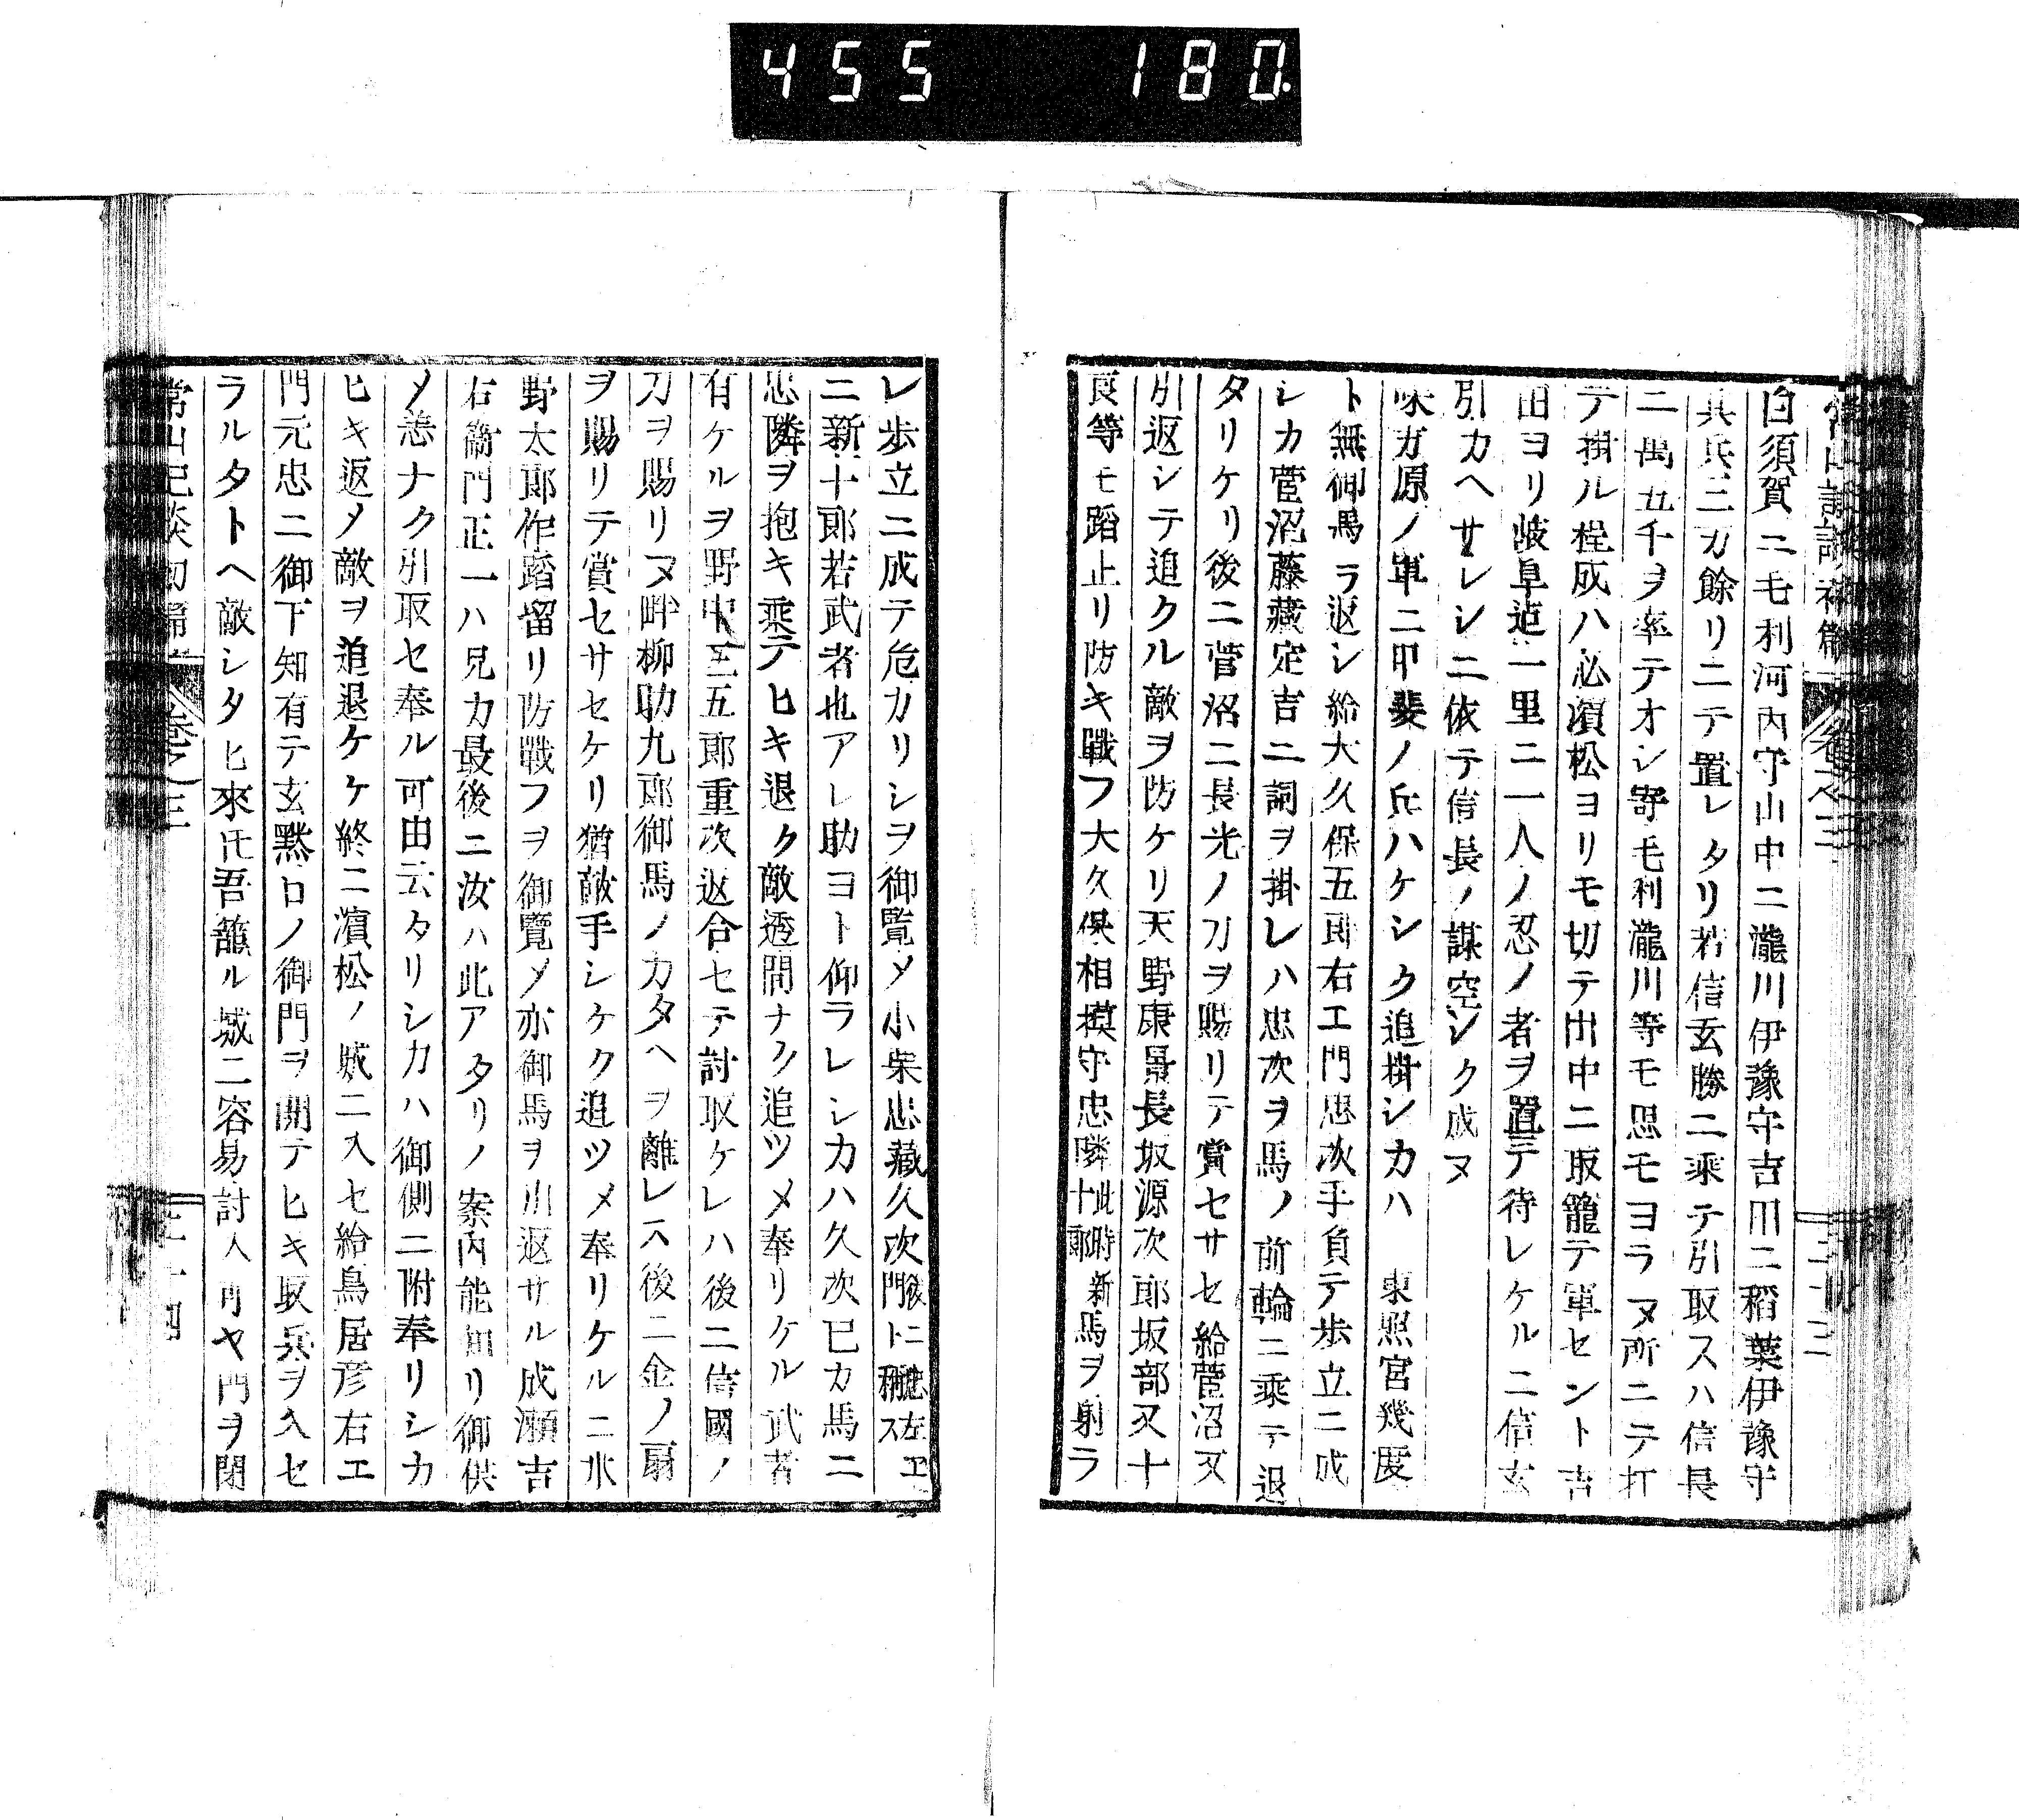 455 180
白須賀ニ毛利河内守山中ニ瀧川伊豫守吉田ニ稻葉伊豫守
其兵三万餘リニテ置レタリ若信玄勝ニ乘テ引取スハ信長
二萬五千ヲ率テオシ寄毛利瀧川等モ思モヨラヌ所ニテ打
テ掛ル程成ハ必濱松ヨリモ切テ出中ニ取籠テ軍セント吉
田ヨリ岐阜迄一里ニ一人ノ忍ノ者ヲ置テ待レケルニ信玄
引カヘサレシニ依テ信長ノ謀空シク成ヌ
味方原ノ軍ニ甲斐ノ兵ハケシク追掛シカハ 東照宮幾度
ト無御馬ヲ返シ給大久保五郎右エ門忠次手負テ歩立ニ成
シカ菅沼藤藏定吉ニ詞ヲ掛レハ忠次ヲ馬ノ前輪ニ乘テ退
タリケリ後ニ菅沼ニ長光ノ刀ヲ賜リテ賞セサセ給菅沼又
引返シテ追クル敵ヲ防ケリ天野康景長坂源次郎坂部又十
良等モ蹈止リ防キ戰フ大久保相摸守忠隣此時新十郎馬ヲ射ラ
レ歩立ニ成テ危カリシヲ御覧メ小栗忠藏久次後ニ忠左エ門ト稱ス
ニ新十郎若武者也アレ助ヨト仰ラレシカハ久次已カ馬ニ
忠隣ヲ抱キ乘テヒキ退ク敵透間ナク追ツメ奉リケル武者
有ケルヲ野中三五郎重次返合セテ討取ケレハ後ニ信國ノ
刀ヲ賜リヌ畔柳助九郎御馬ノカタヘヲ離レス後ニ金ノ扇
ヲ賜リテ賞セサセケリ猶敵手シケク追ツメ奉リケルニ水
野太郎作蹈留リ防戰フヲ御覽メ亦御馬ヲ引返サル成瀬吉
右衞門正一ハ兄カ最後ニ汝ハ此アタリノ案内能知リ御供
メ恙ナク引取セ奉ル可由云タリシカハ御側ニ附奉リシカ
ヒキ返メ敵ヲ追退ケケ終ニ濱松ノ城ニ入セ給鳥居彦右エ
門元忠ニ御下知有テ玄黙口ノ御門ヲ開テヒキ取兵ヲ入セ
ラルタトヘ敵シタヒ來氏吾籠ル城ニ容易討入可ヤ門ヲ閉
常山紀談初編 卷之三